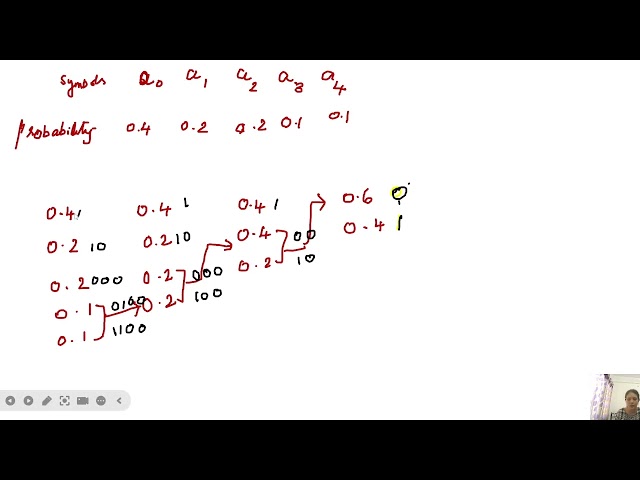 Symbols a0 a1 a2 a3 a4
Probability 0.4 0.2 0.2 0.1 0.1
0.4 1 0.4 1 0.4 1 0.6 0
0.2 10 0.2 10 0.4 00 0.4 1
0.2 000 0.2 000 0.2 10
0.1 0100 0.2 100
0.1 1100